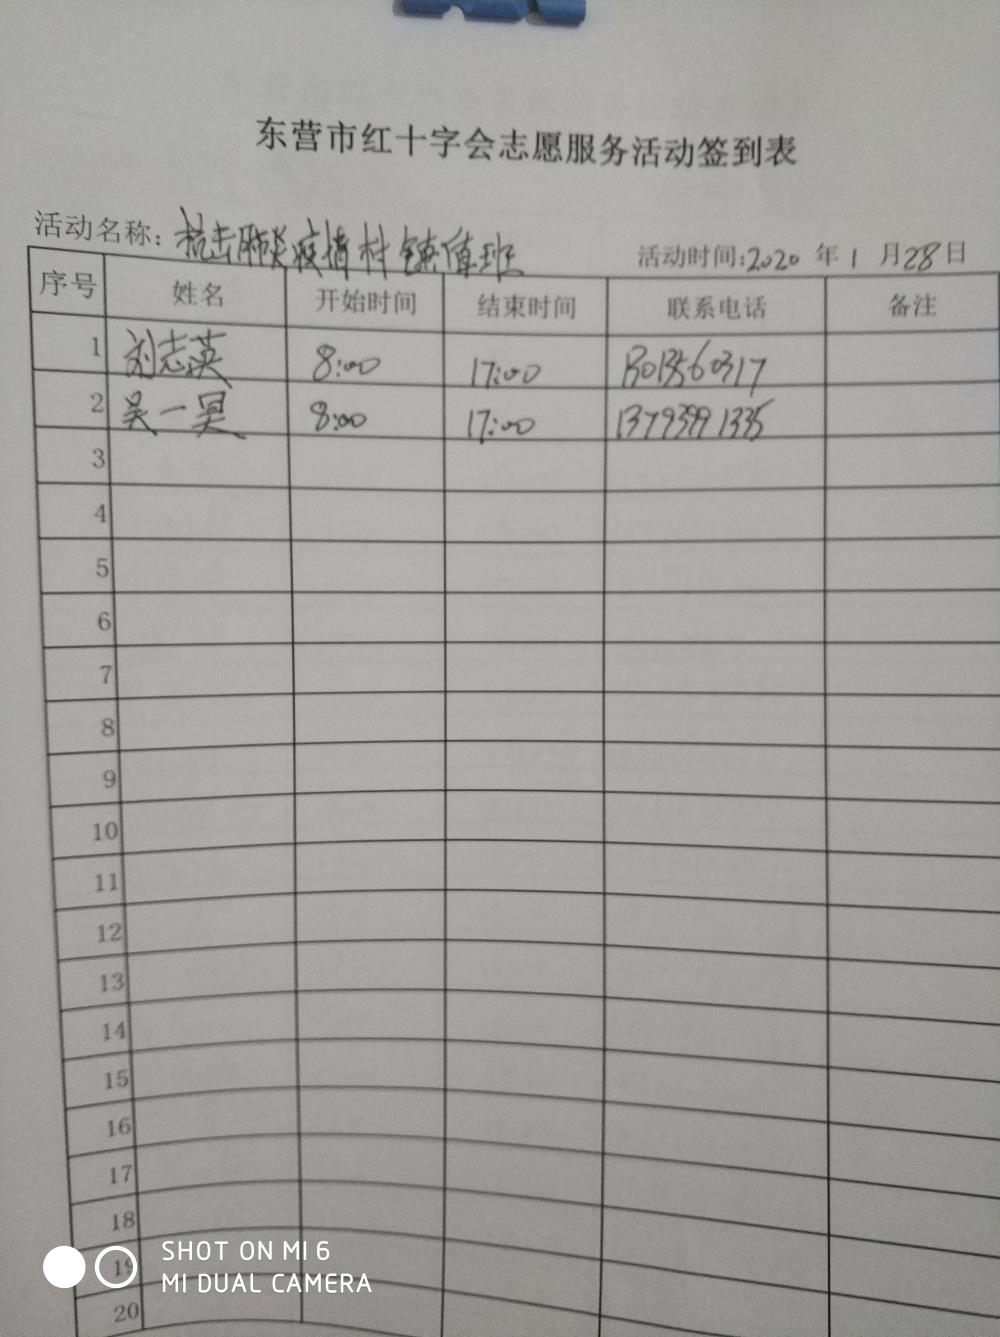 东营市红十字会志愿服务活动签到表
活动名称: 抗击肺炎疫情村镇值班 活动时间:2020 年 1 月 28 日
序号 姓名 开始时间 结束时间 联系电话 备注
1 刘志英 8:00 17:00
2 吴一 8:00 17:00 13793991335
3
4
5
6
7
8
9
10
11
12
13
14
15
16
17
18
19
20
SHOT ON MI 6
MI DUAL CAMERA